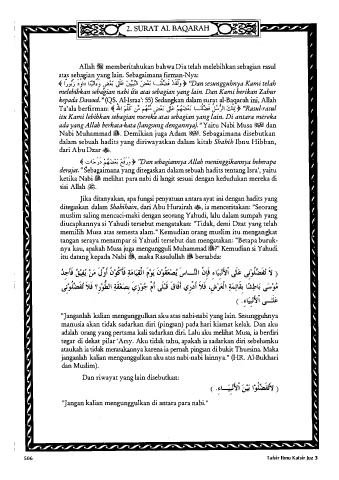 2. SURAT AL BAQARAH
Allah ﷻ memberitahukan bahwa Dia telah melebihkan sebagian rasul
atas sebagian yang lain. Sebagaimana firman-Nya:
﴿ وَلَقَدْ فَضَّلْنَا بَعْضَ النَّبِيِّينَ عَلَى بَعْضٍ وَءَاتَيْنَا دَاوُدَ زَبُورًا ﴾ "Dan sesungguhnya Kami telah
melebihkan sebagian nabi itu atas sebagian yang lain. Dan Kami berikan Zabur
kepada Dawud." (QS. Al-Israa': 55) Sedangkan dalam surat al-Baqarah ini, Allah
Ta'ala berfirman: ﴿ تِلْكَ الرُّسُلُ فَضَّلْنَا بَعْضَهُمْ عَلَى بَعْضٍ مِّنْهُم مَّن كَلَّمَ اللَّهُ ﴾ "Rasul-rasul
itu Kami lebihkan sebagian mereka atas sebagian yang lain. Di antara mereka
ada yang Allah berkata-kata (langsung dengannya)." Yaitu Nabi Musa dan
Nabi Muhammad ﷺ. Demikian juga Adam. Sebagaimana disebutkan
dalam sebuah hadits yang diriwayatkan dalam kitab Shahih Ibnu Hibban,
dari Abu Dzar
﴿ وَرَفَعَ بَعْضَهُمْ دَرَجَاتٍ ﴾ "Dan sebagiannya Allah meninggikannya beberapa
derajat." Sebagaimana yang ditegaskan dalam sebuah hadits tentang Isra', yaitu
ketika Nabi ﷺ melihat para nabi di langit sesuai dengan kedudukan mereka di
sisi Allah ﷻ.
Jika ditanyakan, apa fungsi penyatuan antara ayat ini dengan hadits yang
ditegaskan dalam Shahihain, dari Abu Hurairah, ia menceritakan: "Seorang
muslim saling mencaci-maki dengan seorang Yahudi, lalu dalam sumpah yang
diucapkannya si Yahudi tersebut mengatakan: "Tidak, demi Dzat yang telah
memilih Musa atas semesta alam." Kemudian orang muslim itu mengangkat
tangan seraya menampar si Yahudi tersebut dan mengatakan: "Betapa buruk-
nya kau, apakah Musa juga mengungguli Muhammad ﷺ?" Kemudian si Yahudi
itu datang kepada Nabi ﷺ, maka Rasulullah ﷺ bersabda:
( لَا تُفَضِّلُونِي عَلَى الْأَنْبِيَاءِ فَإِنَّ النَّاسَ يُصْعَقُونَ يَوْمَ الْقِيَامَةِ فَأَكُونُ أَوَّلَ مَنْ يُفِيقُ فَأَجِدُ
مُوسَى بَاطِشًا بِقَائِمَةِ الْعَرْشِ، فَلَا أَدْرِي أَفَاقَ قَبْلِي أَمْ جُوزِيَ بِصَعْقَةِ الطُّورِ؟ فَلَا تُفَضِّلُونِي
عَلَى الْأَنْبِيَاءِ. )
"Janganlah kalian mengunggulkan aku atas nabi-nabi yang lain. Sesungguhnya
manusia akan tidak sadarkan diri (pingsan) pada hari kiamat kelak. Dan aku
adalah orang yang pertama kali sadarkan diri. Lalu aku melihat Musa, ia berdiri
tegar di dekat pilar 'Arsy. Aku tidak tahu, apakah ia sadarkan diri sebelumku
ataukah ia tidak merasakannya karena ia pernah pingsan di bukit Thursina. Maka
janganlah kalian mengunggulkan aku atas nabi-nabi lainnya." (HR. Al-Bukhari
dan Muslim).
Dan riwayat yang lain disebutkan:
( لَا تُفَضِّلُوا بَيْنَ الْأَنْبِيَاءِ. )
"Jangan kalian mengunggulkan di antara para nabi."
506
Tafsir Ibnu Katsir Juz 3